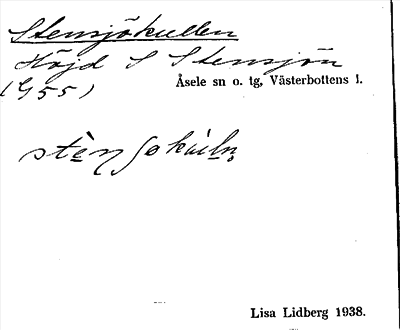 Stensjökullen
Höjd S Stensjön
(G55)
Åsele sn o. tg, Västerbottens l.
Lisa Lidberg 1938.